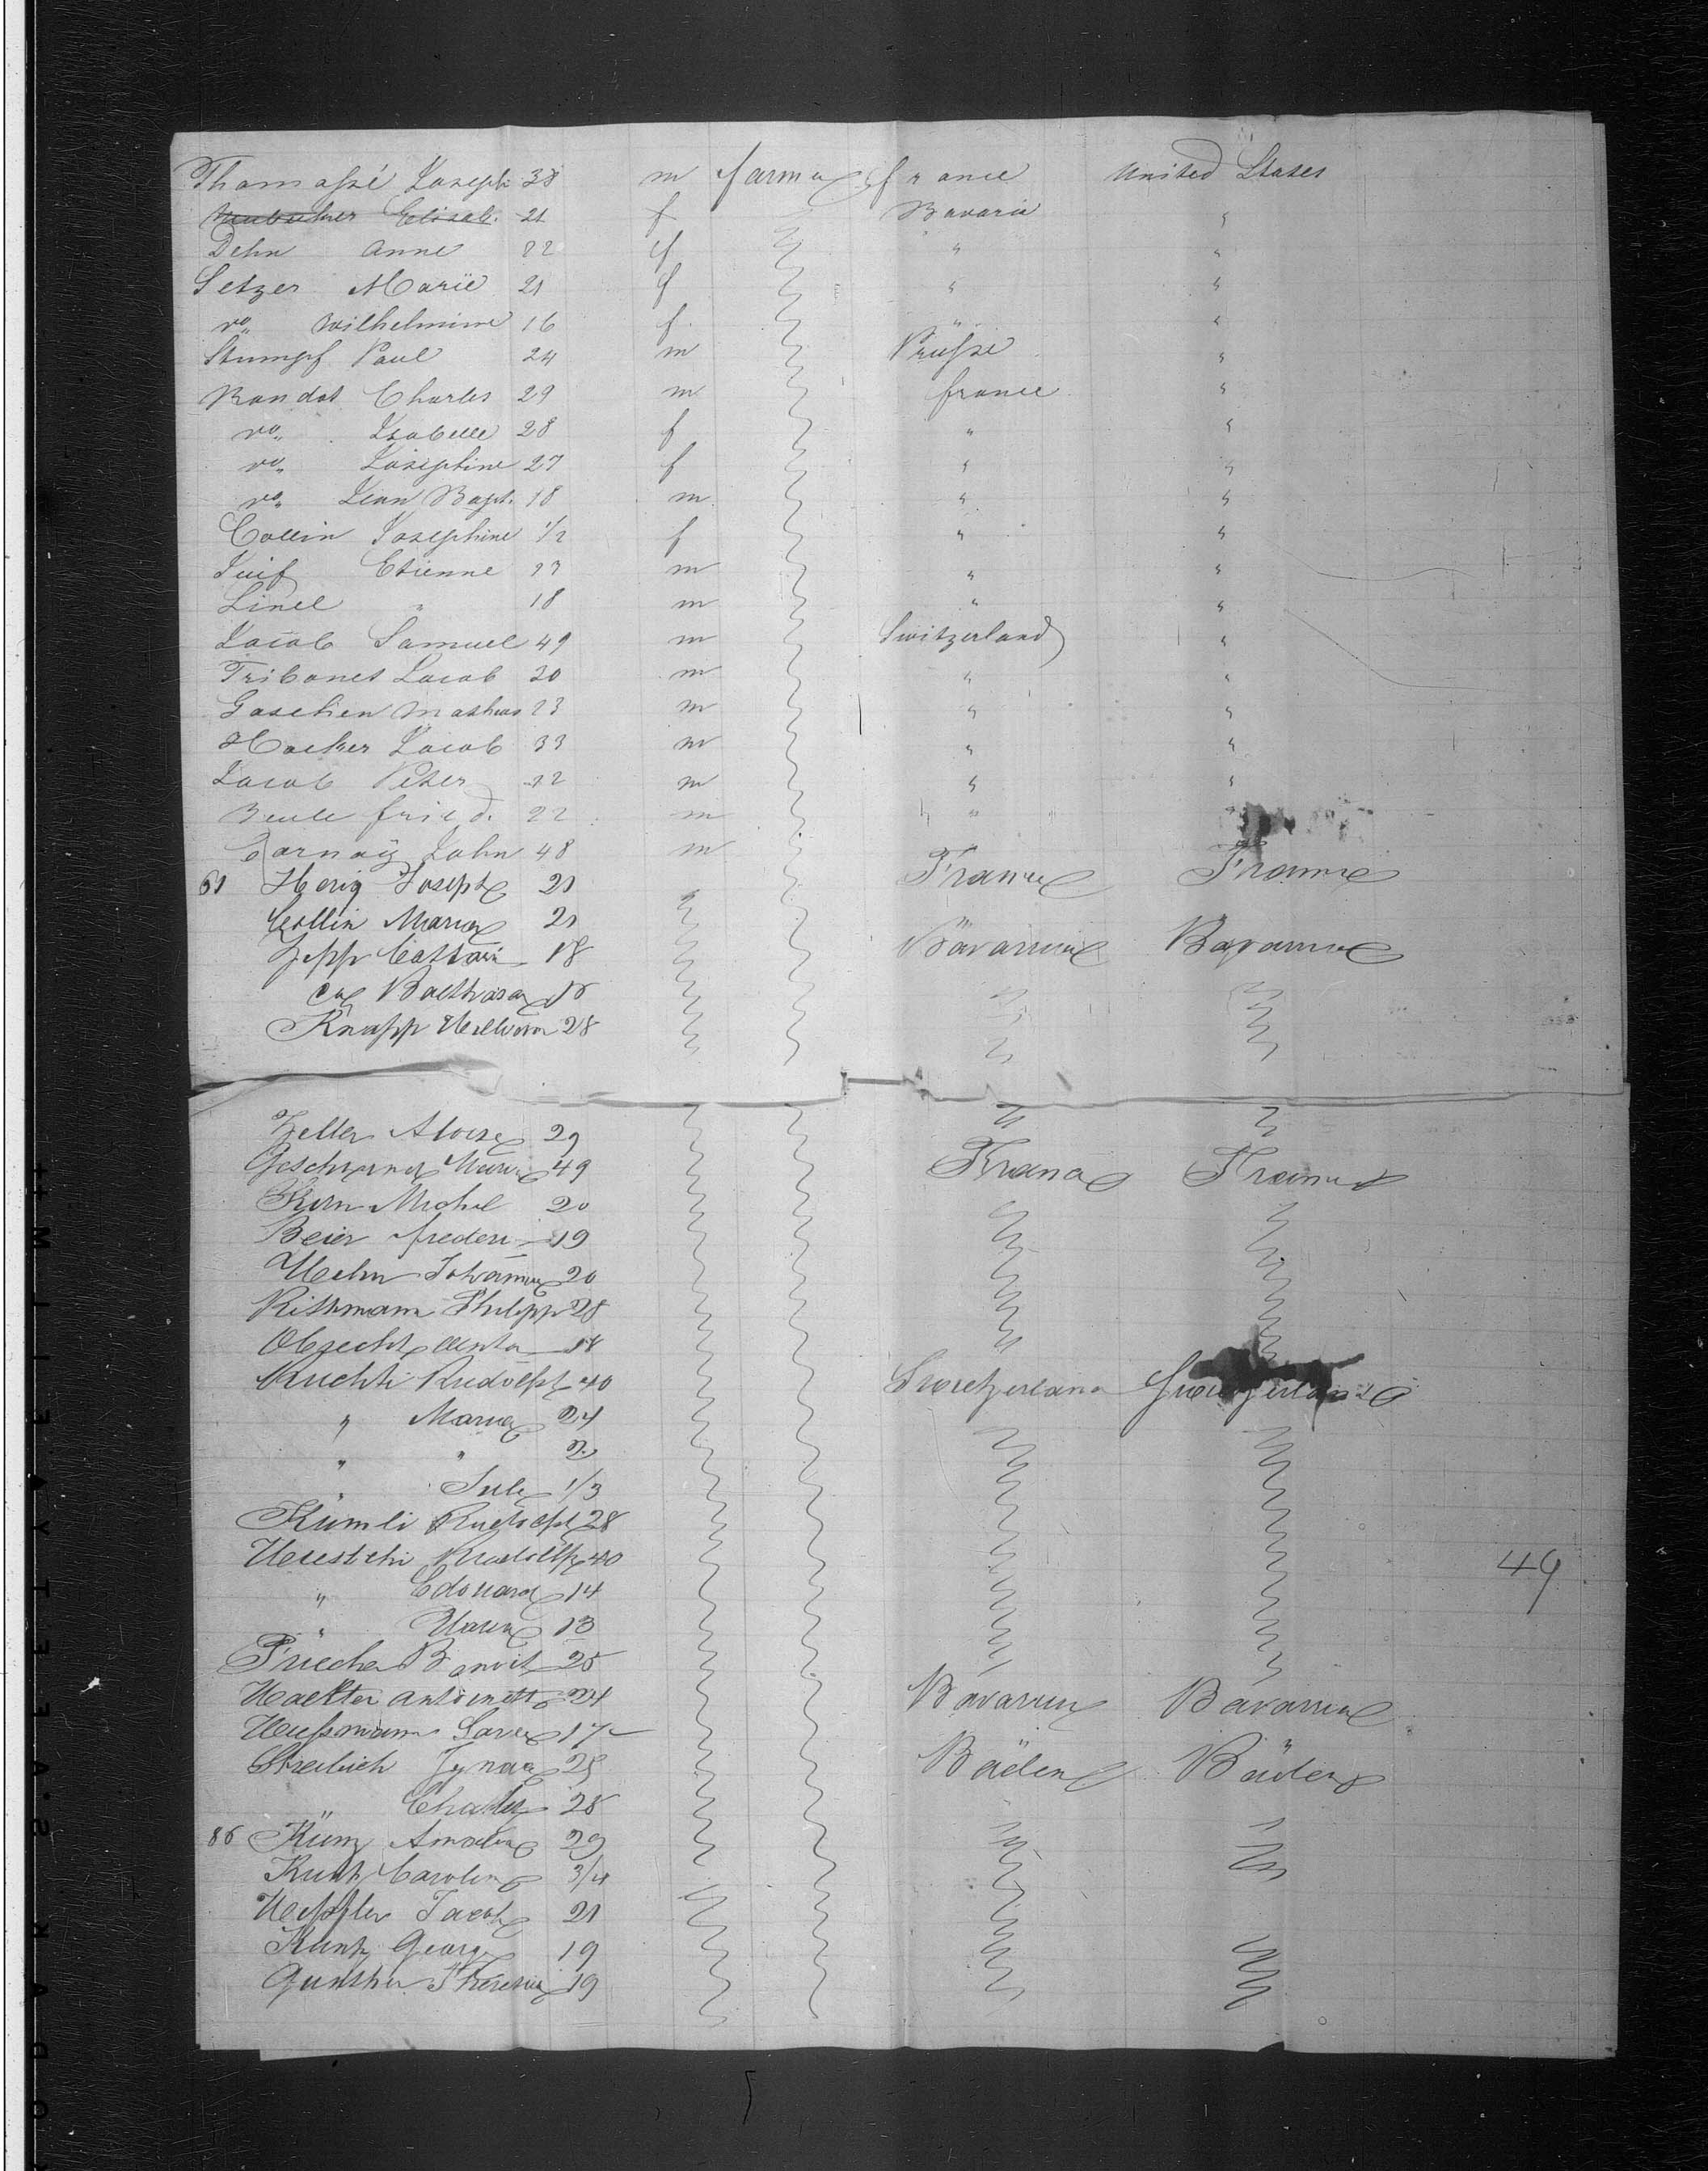 Thomaßé Joseph 38 m farmer france United States
Elisab. 21 f Bavaria "
Dehn Anne 22 f " "
Setzer Marie 21 f " "
ro" Wilhelmine 16 f " "
Stumpf Paul 24 m Prußse "
Rondot Charles 29 m france "
ro" Isabelle 28 f " "
ro" Josephine 27 f " "
ro" Jean Bapt. 18 m " "
Collin Josephine 1/2 f " "
Juif Etienne m " "
Linel " 18 m " "
Jacob Samuel 49 m Switzerland "
Tribonet Jacob 30 m " "
Goschen Mathias 23 m " "
Hocker Jacob 33 m " "
Jacob Peter m " "
Beule fried. 22 m " "
John 48 m
61 Herig Joseph 21 France France
Collin Maria 21
Zepp 18 Bavaria Bavaria
Balthasar
Knapp 28
Zeller Aloise 29
49 France France
Kern Michel 20
Beier frederi 19
Hehn Johanna 20
Rithmann Philipp 28
Obrecht 18
Ruchti Rudolph 40 Switzerland Switzerland
" Maria 24
" " 2
" July 1/3
Kümli Rudolph 28
Rudolph 40
" Edouard 14
" 13
25
Antoinette 24 Bavaria Bavaria
Heußmann 17
Streibich Ignaz 25 Baden Baden
Charles 28
86 Kunz Amalia 29
Kuntz Caroline 3/4
Jacob 21
Kuntz Georg 19
Gunther Theresia 19
49